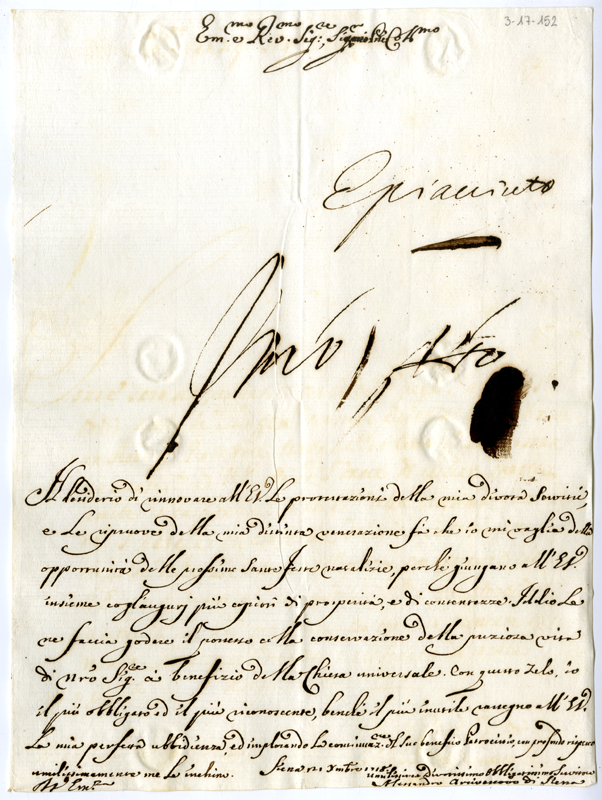 3-17-152
Em.mo e Rev.mo Sig.re, Sig.re
E piaciuto
Il desiderio di rinnovare all'E.V. le protestazioni della mia divota Servitù,
e le riprove della mia distinta venerazione fà, che io mi vaglia della
opportunità delle prossime Sante Feste natalizie, perché giungano all'E.V.
insieme cogl'auguri più copiosi di prosperità, e di contentezze. Iddio Le
ne faccia godere il possesso colla conservazione della preziosa vita
di Nr̃o Sig.re à benefizio della Chiesa universale. Con questo zelo, io
il più obbligato ed il più riconoscente, benche il più inutile rassegno all'E.V.
La mia perfetta ubbidienza, ed implorando la continuaz.ne del suo benefico Patrocinio, con profondo rispetto
umilissimamente me le inchino. Siena
Umilissimo Divotissimo Obbligatissimo Servitore
Alessandro Arcivescovo di Siena